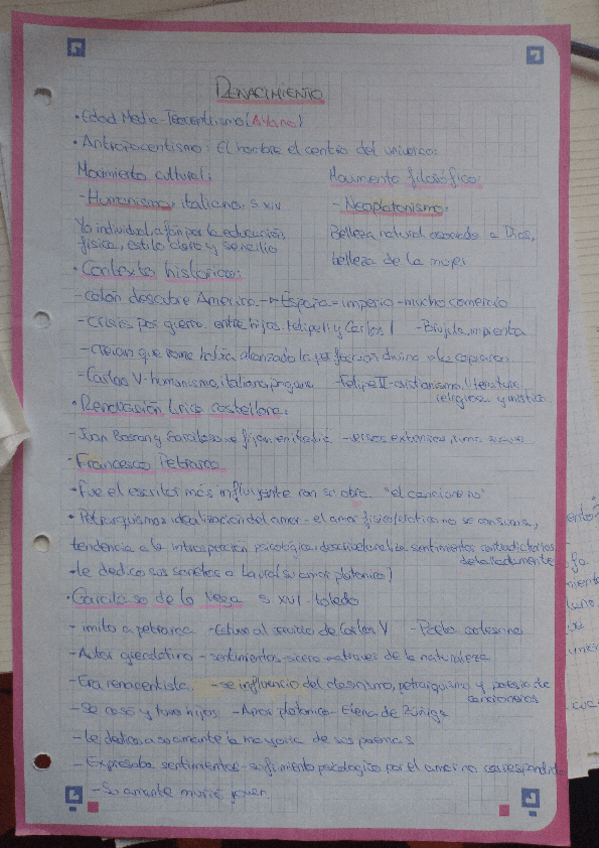 RENACIMIENTO
• Edad Media - Teocentrismo
• Antropocentismo: El hombre el centro del universo.
Movimiento cultural:
- Humanismo, italiano, s XIV
Yo individual, afán por la educación,
física, estilo claro y sencillo
Movimiento filosófico:
- Neoplatonismo,
Belleza natural asociada a Dios,
belleza de la mujer
• Contexto histórico:
- Colón descubre America → España = imperio - mucho comercio
- Crisis por guerra entre hijos, Felipe II y Carlos I - Brújula, imprenta
- Creían que Roma había alcanzado la perfección divina, y la copiaron
- Carlos V - humanismo, italiano, pagano - Felipe II - cristianismo, literatura
religiosa y mística
• Renovación lírica castellana:
- Juan Boscan y Garcilaso se fijan en Italia - versos extensos, rima suave
- Francesco Petrarca
• Fue el escritor más influyente con su obra "el cancionero"
• Petrarquismo: idealización del amor - el amor físico/platico no se consuma,
tendencia a la introspección psicológica, sentimientos contradictorios
detalladamente
• le dedico sus sonetos a Laura (su amor platonico)
• Garcilaso de la Vega s XVI - Toledo
- imito a petrarca - Estuvo al servicio de Carlos V - Poeta cortesano
- Autor - sentimientos a traves de la naturaleza
- Era renacentista, - se influencio del clasicismo, petrarquismo y poesia de
cancioneros
- Se casó y tuvo hijos - Amor platonico - Elena de Zúñiga
- Le dedico a su amante la mayoria de sus poemas
- Expresaba sentimientos - sufrimiento psicologico por el amor no correspondido
- Su amante murió joven.